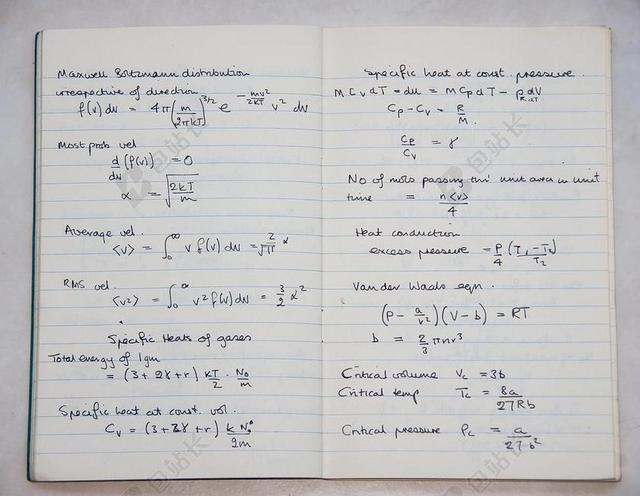 Maxwell Boltzmann distribution
irrespective of direction
f(v) dv = 4π (m/2πkT)^3/2 e^-mv²/2kT v² dv
Most prob vel
d/dv (f(v)) = 0
α = √(2kT/m)
Average vel.
<v> = ∫₀^∞ v f(v) dv = 2/√π α
RMS vel.
<v²> = ∫₀^∞ v² f(v) dv = 3/2 α²
Specific Heats of gases
Total energy of 1gm
= (3+2γ+r) kT/2 · N₀/m
Specific heat at const. vol.
Cv = (3+2γ+r) k N₀/2m
Specific heat at const. pressure.
M Cv dT = du = M Cp dT - p dV
R dT
Cp - Cv = R/M.
Cp/Cv = γ
No of mols passing thro' unit area in unit
time = n<v>/4
Heat conduction
excess pressure = P/4 (T₁-T₂)/T₂
Van der Waals eqn.
(P - a/v²)(V-b) = RT
b = 2/3 πnr³
Critical volume Vc = 3b
Critical temp Tc = 8a/27Rb
Critical pressure Pc = a/27b²
包站长
包站长